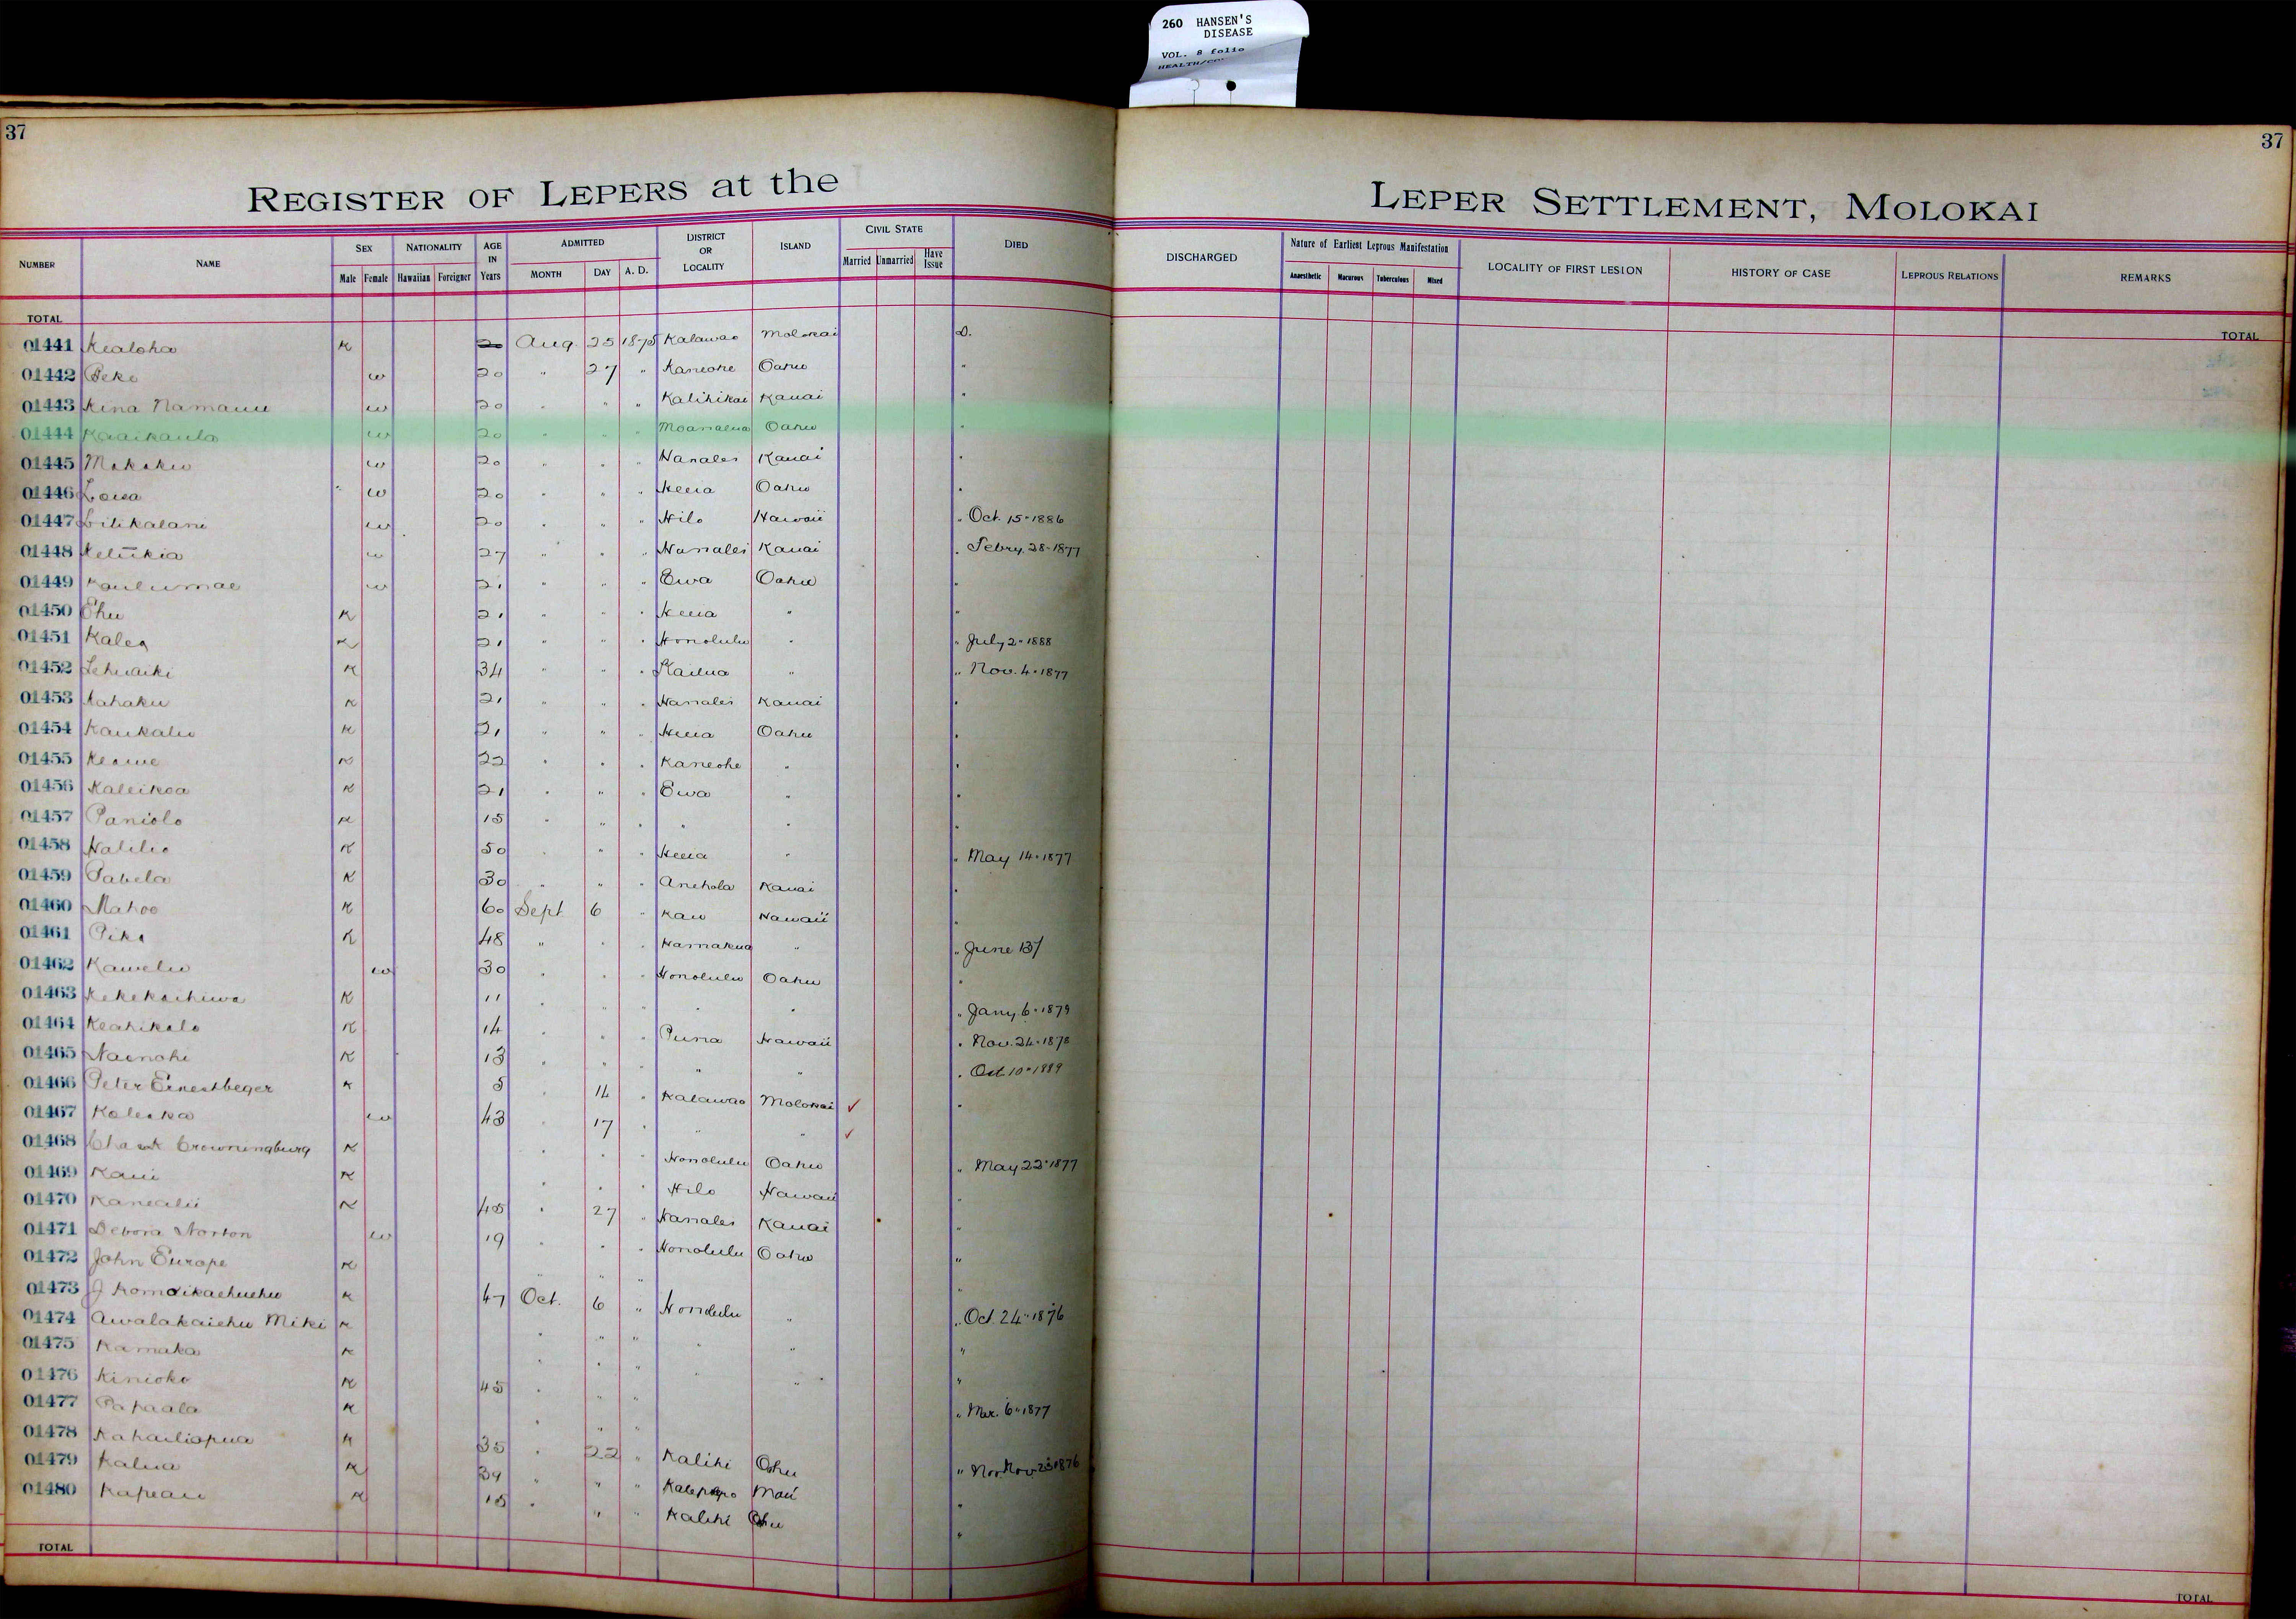 260 HANSEN'S
DISEASE
VOL. 8 folio
37
37
REGISTER OF LEPERS at the
LEPER SETTLEMENT, MOLOKAI
NUMBER NAME SEX Male Female NATIONALITY Hawaiian Foreigner AGE IN Years ADMITTED MONTH DAY A. D. DISTRICT OR LOCALITY ISLAND CIVIL STATE Married Unmarried Have Issue DIED
DISCHARGED Nature of Earliest Leprous Manifestation Anaesthetic Macurous Tuberculous Mixed LOCALITY OF FIRST LESION HISTORY OF CASE LEPROUS RELATIONS REMARKS
TOTAL
TOTAL
01441 Kealoha K 20 Aug. 25 1875 Kalawao Molokai D.
01442 Peke w 20 " 27 " Kaneohe Oahu "
01443 Kina Namauu w 20 " " " Kalihikai Kauai "
01444 Kaaikaula w 20 " " " Moanalua Oahu "
01445 Mokoku w 20 " " " Hanalei Kauai "
01446 Loisa w 20 " " " Heeia Oahu "
01447 Lilikalani w 20 " " " Hilo Hawaii " Oct. 15-1886
01448 Keliikia w 27 " " " Hanalei Kauai " Febry. 28-1877
01449 Kaulumae w 21 " " " Ewa Oahu "
01450 Ehu K 21 " " " Heeia " "
01451 Kalea K 21 " " " Honolulu " " July 2-1888
01452 Lehuaiki K 34 " " " Kailua " " Nov. 4-1877
01453 Kahaku K 21 " " " Hanalei Kauai "
01454 Kaukaliu K 21 " " " Heeia Oahu "
01455 Keawe K 22 " " " Kaneohe " "
01456 Kaleikoa K 21 " " " Ewa " "
01457 Paniolo K 15 " " " " " "
01458 Halilio K 50 " " " Heeia " " May 14-1877
01459 Pabela K 30 " " " Anehola Kauai "
01460 Mahoe K 60 Sept 6 " Kau Hawaii "
01461 Pika K 48 " " " Hamakua " " June 137
01462 Kawelu w 30 " " " Honolulu Oahu "
01463 Kekekachiwa K 11 " " " " " " Jany. 6-1879
01464 Keahikolo K 14 " " " Puna Hawaii " Nov. 24-1878
01465 Nainohi K 13 " " " " " " Oct. 10-1889
01466 Peter Ernestbeger K 5 " 14 " Kalawao Molokai ✓ "
01467 Koleka w 43 " 17 " " " ✓
01468 Crowningburg K " " " Honolulu Oahu " May 22-1877
01469 Kaui K " " " Hilo Hawaii "
01470 Kanealii K 45 " 27 " Hanalei Kauai "
01471 Debora Norton w 19 " " " Honolulu Oahu "
01472 John Europe K " " " "
01473 J Komoikaehuehu K 47 Oct. 6 " Honolulu " " Oct. 24-1876
01474 Awalakaiehu Miki K " " " " " "
01475 Kamaka K " " " " " "
01476 Kinioko K 45 " " " " Mar. 6-1877
01477 Papaala K " " "
01478 Kahailiopua K 35 " 22 " Kalihi Oahu " Nov. 23-1876
01479 Kalua K 39 " " " Kalepolepo Maui "
01480 Kapeau K 15 " " " Kalihi Oahu "
TOTAL
TOTAL